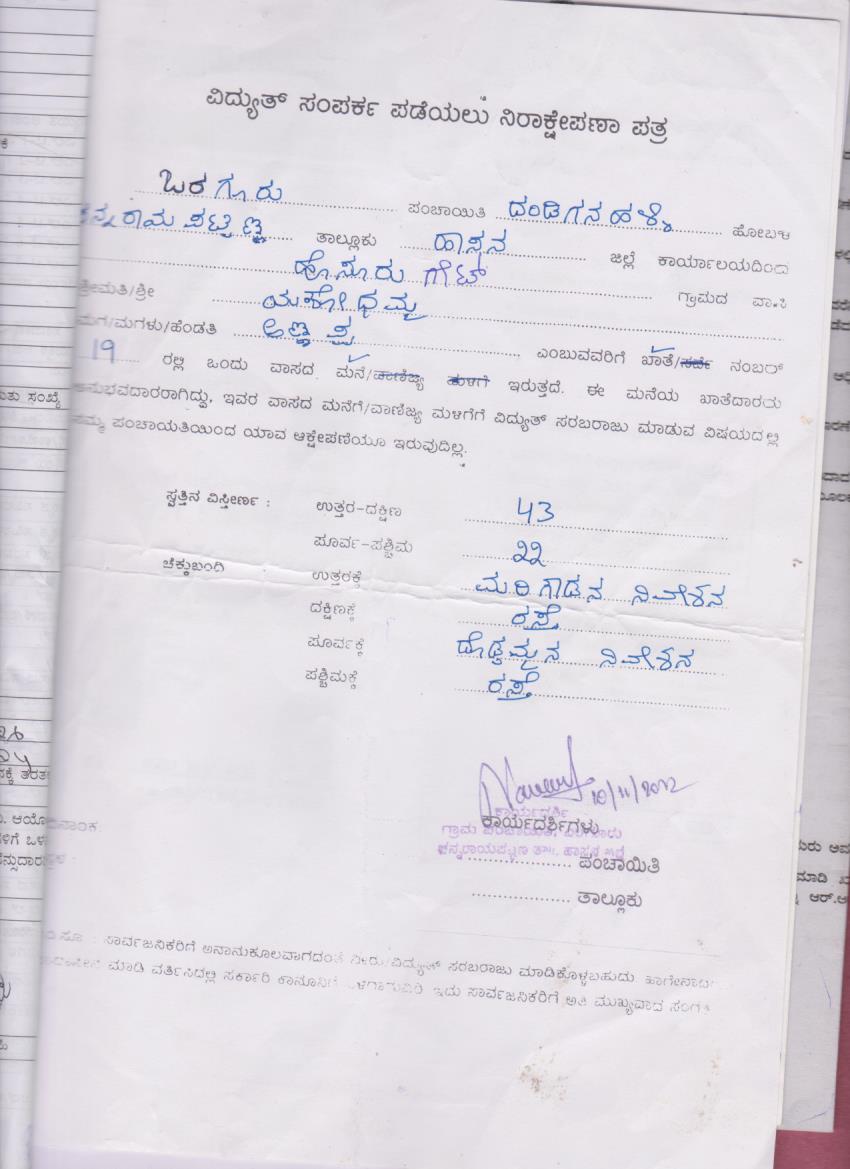 ವಿದ್ಯುತ್ ಸಂಪರ್ಕ ಪಡೆಯಲು ನಿರಾಕ್ಷೇಪಣಾ ಪತ್ರ
ಒರಗೂರು ಪಂಚಾಯಿತಿ ದಂಡಿಗನಹಳ್ಳಿ ಹೋಬಳಿ
ತಾಲ್ಲೂಕು ಹಾಸನ ಜಿಲ್ಲೆ ಕಾರ್ಯಾಲಯದಿಂದ
ಹೊಸೂರು ಗೇಟ್ ಗ್ರಾಮದ ವಾಸಿ
ಶ್ರೀಮತಿ/ಶ್ರೀ ಯಶೋಧಮ್ಮ
ಮಗ/ಮಗಳು/ಹೆಂಡತಿ ಅಣ್ಣಪ್ಪ ಎಂಬುವವರಿಗೆ ಖಾತೆ/ಸರ್ವೆ ನಂಬರ್
19 ರಲ್ಲಿ ಒಂದು ವಾಸದ ಮನೆ/ವಾಣಿಜ್ಯ ಮಳಿಗೆ ಇರುತ್ತದೆ. ಈ ಮನೆಯ ಖಾತೆದಾರರು
ಅನುಭವದಾರರಾಗಿದ್ದು, ಇವರ ವಾಸದ ಮನೆಗೆ/ವಾಣಿಜ್ಯ ಮಳಿಗೆಗೆ ವಿದ್ಯುತ್ ಸರಬರಾಜು ಮಾಡುವ ವಿಷಯದಲ್ಲಿ
ನಮ್ಮ ಪಂಚಾಯತಿಯಿಂದ ಯಾವ ಆಕ್ಷೇಪಣೆಯೂ ಇರುವುದಿಲ್ಲ.
ಸ್ವತ್ತಿನ ವಿಸ್ತೀರ್ಣ : ಉತ್ತರ-ದಕ್ಷಿಣ 43
ಪೂರ್ವ-ಪಶ್ಚಿಮ ೨೨
ಚೆಕ್ಕುಬಂದಿ : ಉತ್ತರಕ್ಕೆ ಮರಿಗೌಡನ ನಿವೇಶನ
ದಕ್ಷಿಣಕ್ಕೆ ರಸ್ತೆ
ಪೂರ್ವಕ್ಕೆ ದೊಡ್ಡಮ್ಮನ ನಿವೇಶನ
ಪಶ್ಚಿಮಕ್ಕೆ ರಸ್ತೆ
10/11/2012
ಕಾರ್ಯದರ್ಶಿ
ಕಾರ್ಯದರ್ಶಿಗಳು
ಗ್ರಾಮ ಪಂಚಾಯಿತಿ
ಚನ್ನರಾಯಪಟ್ಟಣ ತಾ||, ಹಾಸನ ಜಿಲ್ಲೆ
ಪಂಚಾಯಿತಿ
ತಾಲ್ಲೂಕು
ಸಾರ್ವಜನಿಕರಿಗೆ ಅನಾನುಕೂಲವಾಗದಂತೆ ನೀರು/ವಿದ್ಯುತ್ ಸರಬರಾಜು ಮಾಡಿಕೊಳ್ಳಬಹುದು
ಮಾಡಿ ವರ್ತಿಸಿದಲ್ಲಿ ಸರ್ಕಾರಿ ಇದು ಸಾರ್ವಜನಿಕರಿಗೆ ಅತಿ ಮುಖ್ಯವಾದ